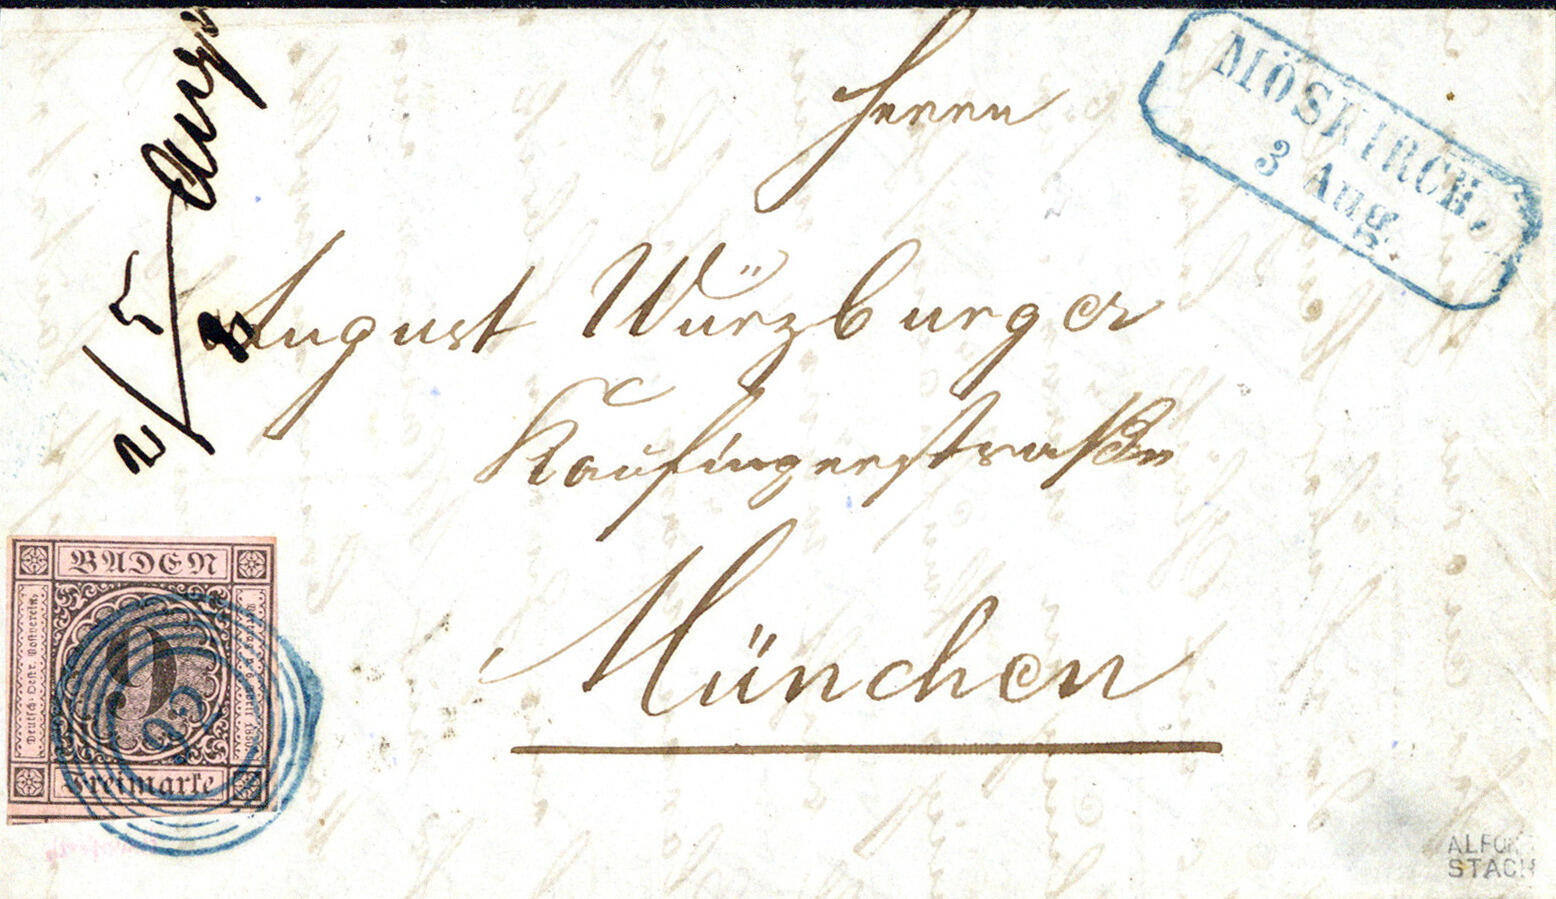 Herrn
August Würzburger
Kaufingerstraße
München
MÖSKIRCH,
3 Aug.
2/5 Aug
BADEN
9
Freimarke
Deutsch-Oestr. Postverein.
93
ALFONS
STACH